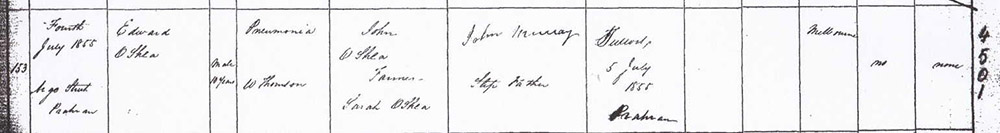 153
Fourth
July 1855
Street
Prahran
Edward
O'Shea
Male
10 Years
Pneumonia
W Thomson
John
O'Shea
Farmer
Sarah O'Shea
John Murray
Step Father
5 July
1855
Prahran
Melbourne
no
none
4501